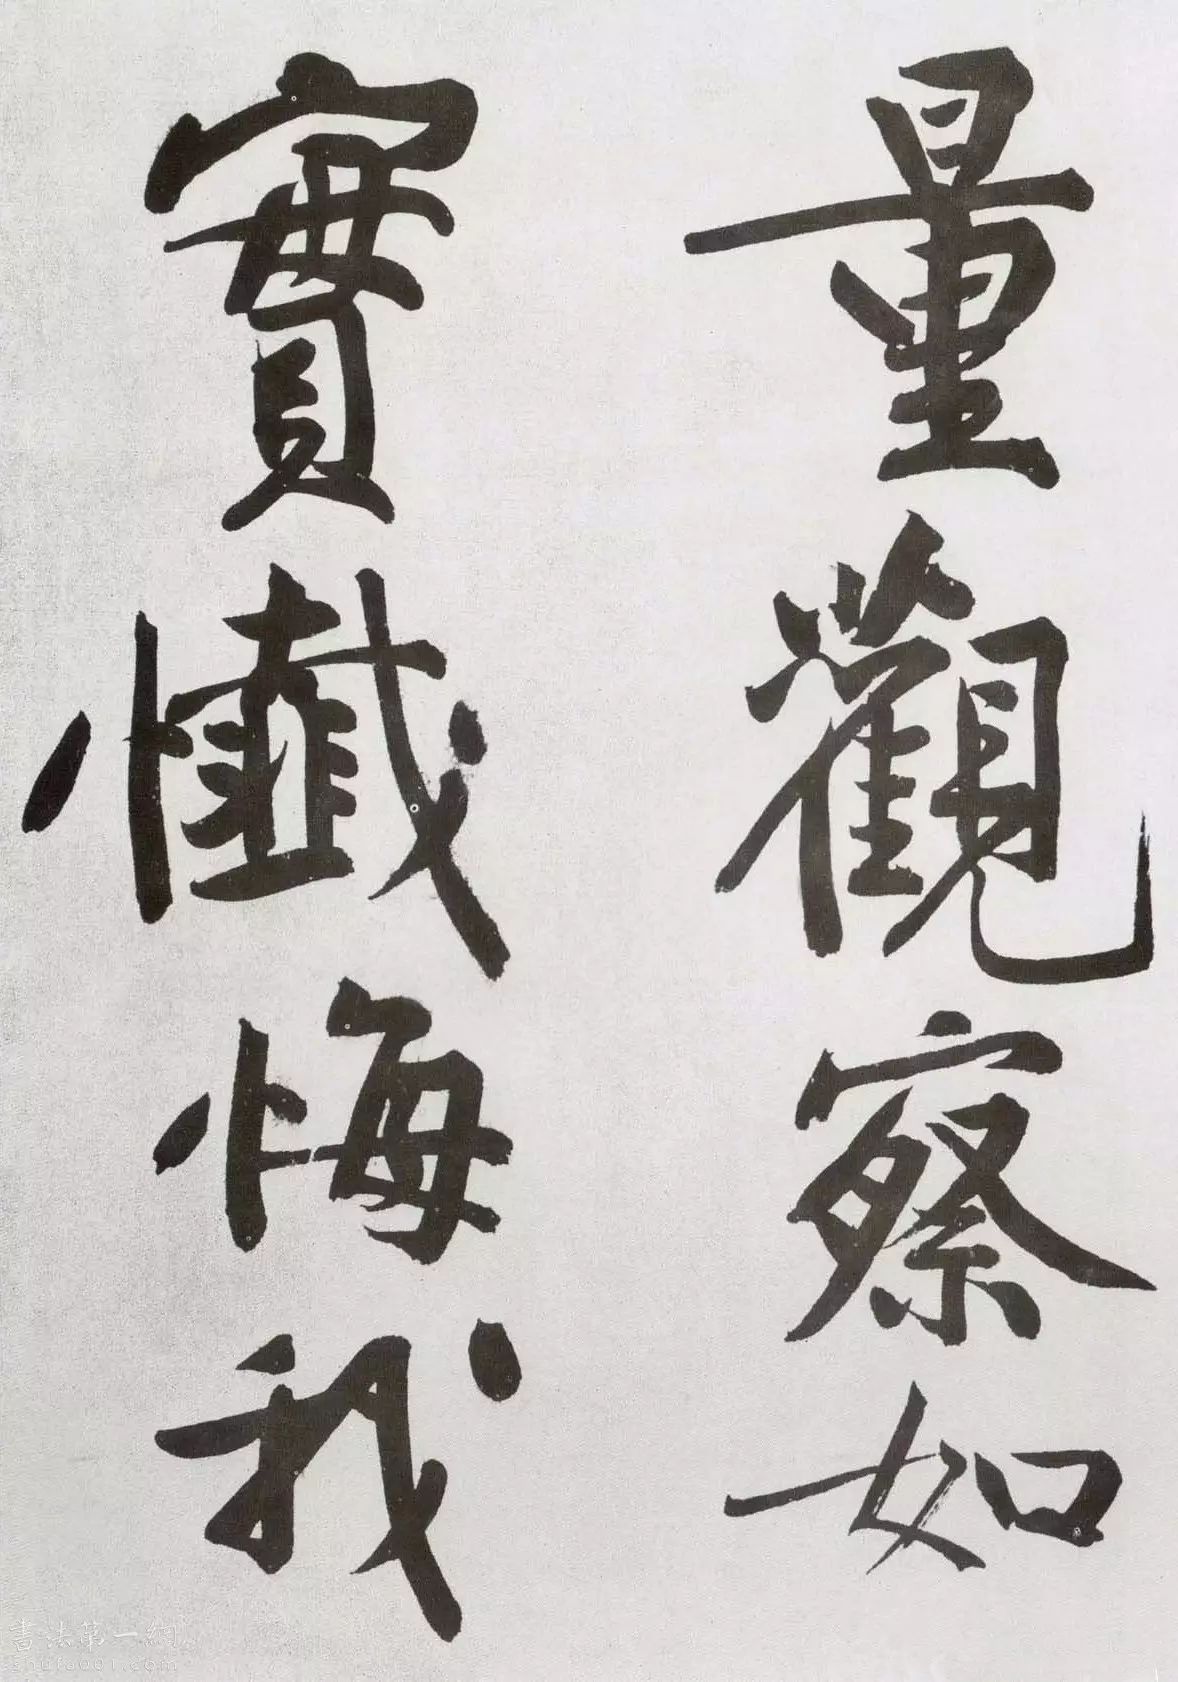 量觀察如
實懺悔我
書法第一網
shufa001.com